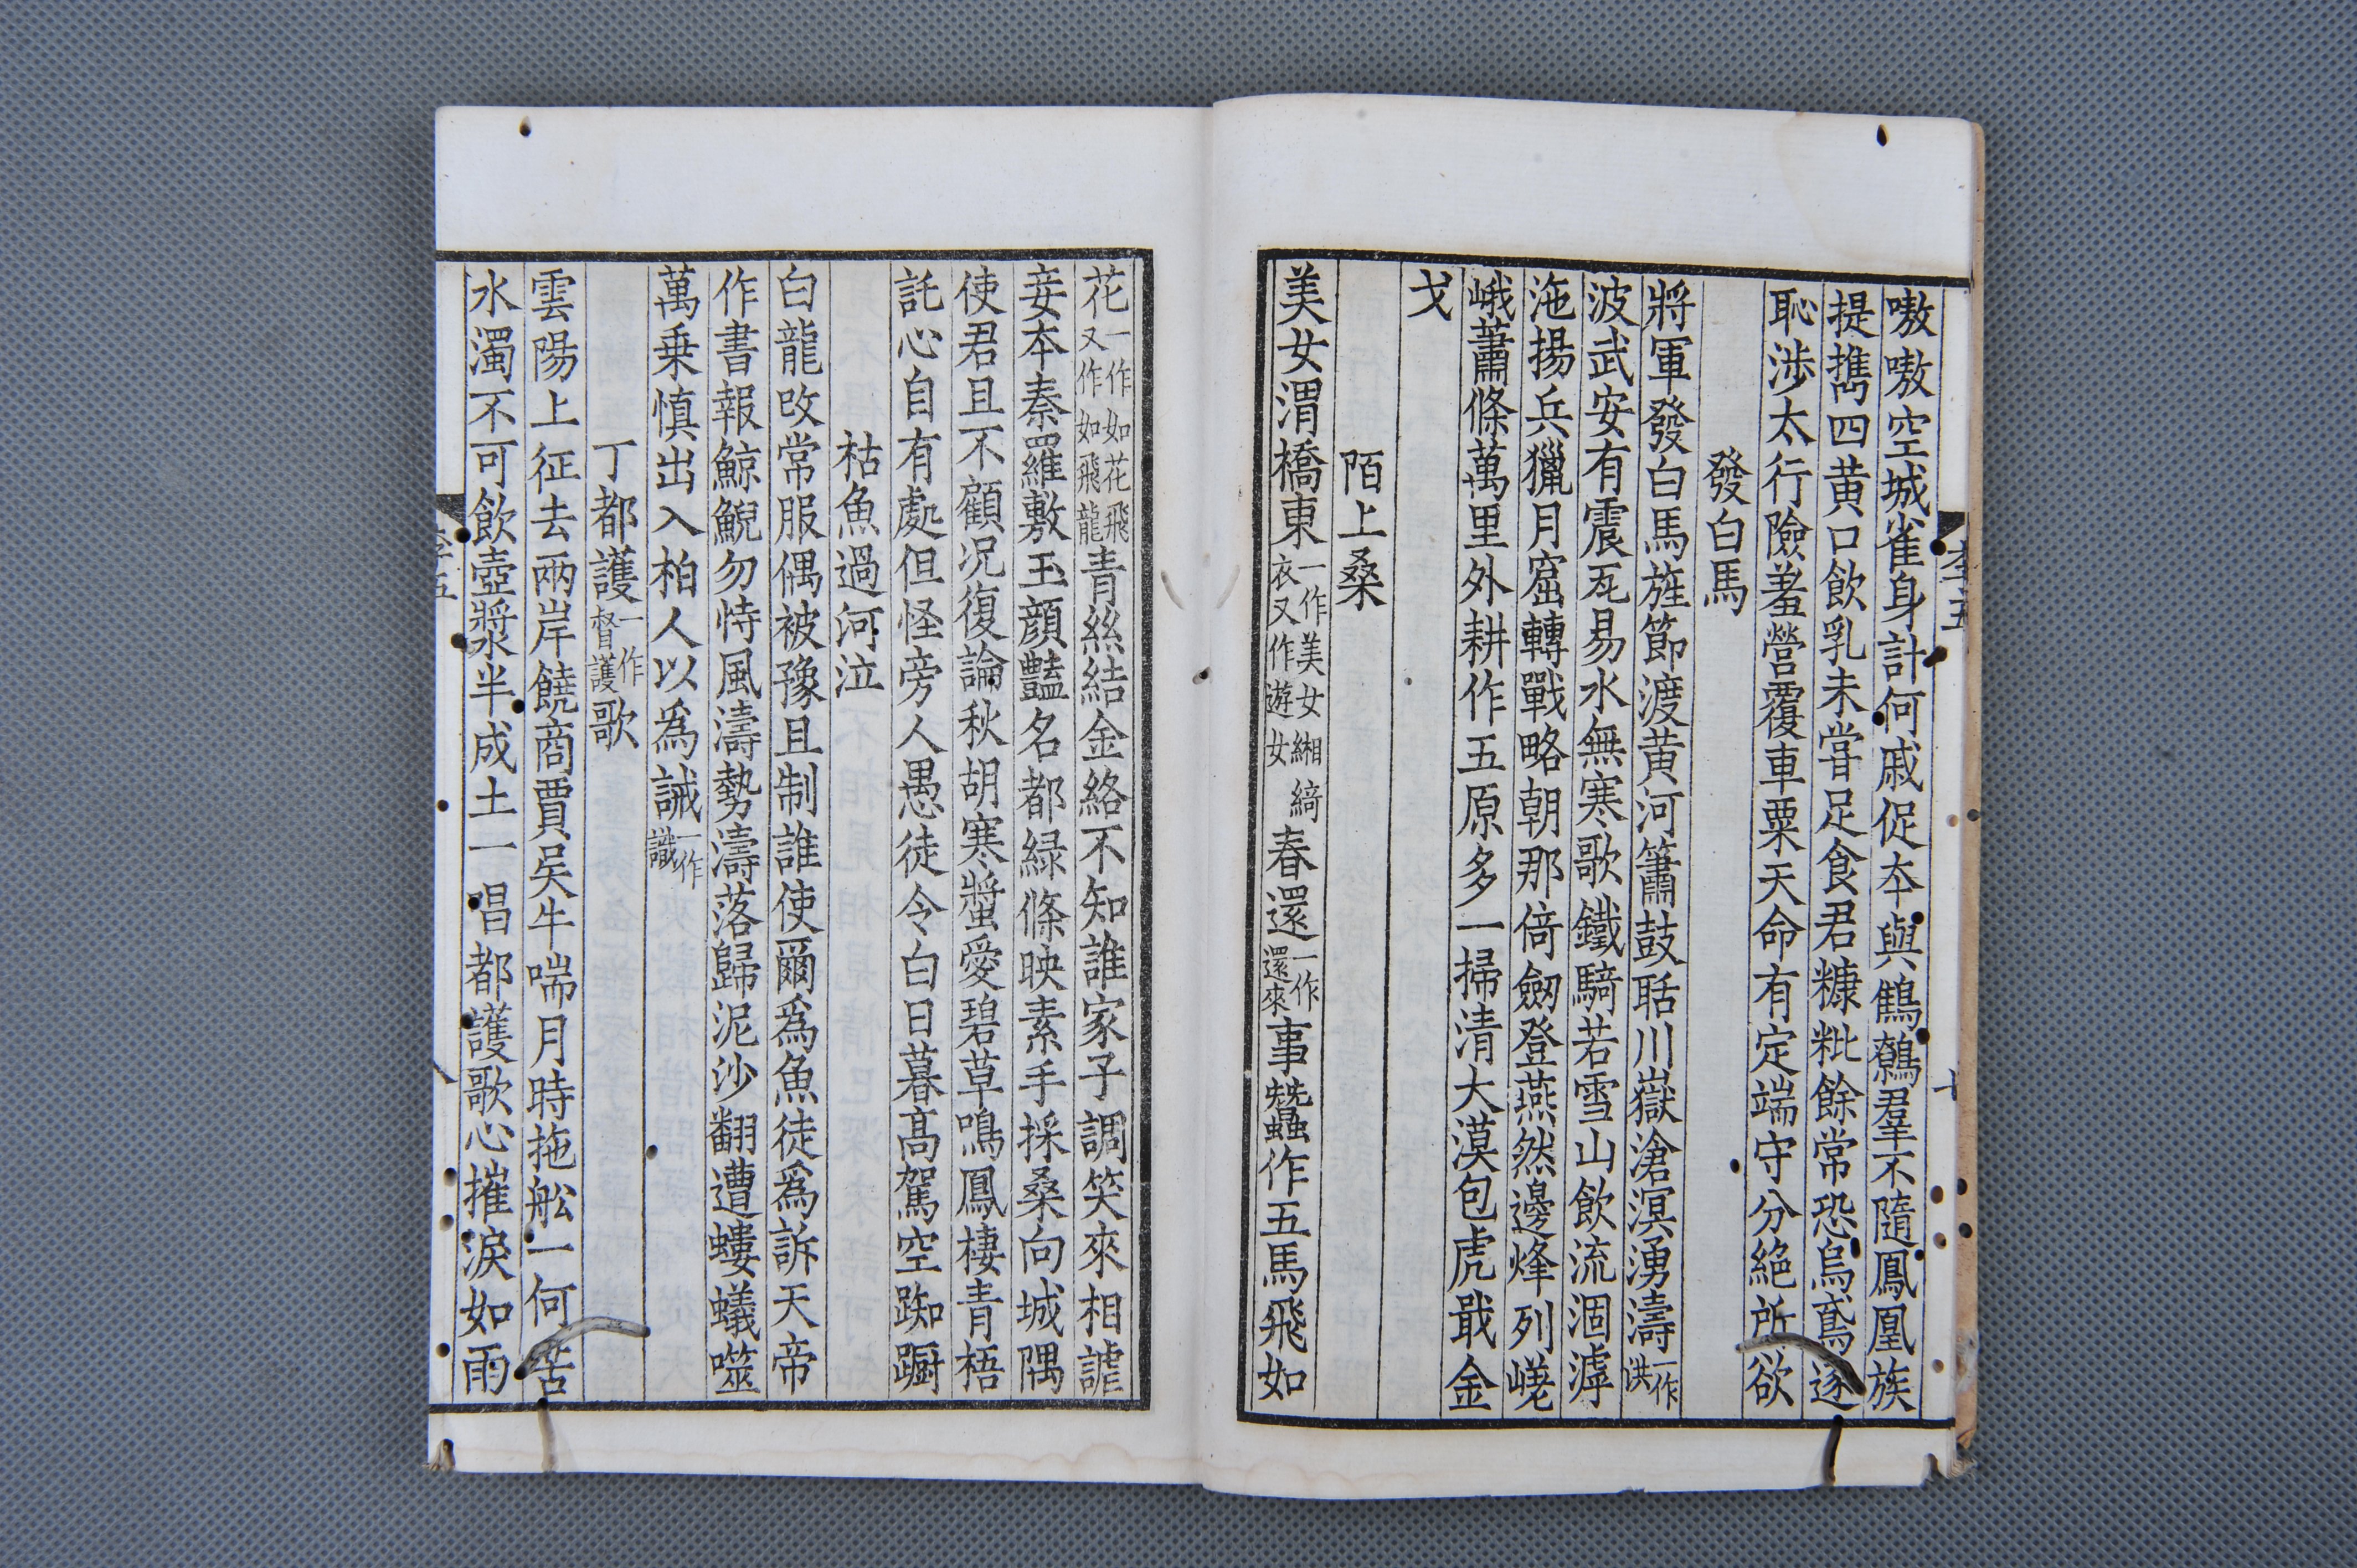 嗷嗷空城雀身計何戚促本與鷦鷯羣不隨鳳凰族
提攜四黄口飲乳未嘗足食君糠粃餘常恐烏鳶逐
恥涉太行險羞營覆車粟天命有定端守分絶所欲
發白馬
將軍發白馬旌節渡黄河簫鼓聒川嶽滄溟湧濤一作洪
波武安有震瓦易水無寒歌鐵騎若雪山飲流涸滹
沲揚兵獵月窟轉戰略朝那倚劒登燕然邊烽列嵯
峨蕭條萬里外耕作五原多一掃清大漠包虎戢金
戈
陌上桑
美女渭橋東一作美女緗綺衣又作遊女春還一作還來事蠶作五馬飛如
花一作如花飛又作如飛龍青絲結金絡不知誰家子調笑來相謔
妾本秦羅敷玉顔豔名都緑條映素手採桑向城隅
使君且不顧况復論秋胡寒螿愛碧草鳴鳳棲青梧
託心自有處但怪旁人愚徒令白日暮高駕空踟蹰
枯魚過河泣
白龍改常服偶被豫且制誰使爾爲魚徒爲訴天帝
作書報鯨鯢勿恃風濤勢濤落歸泥沙翻遭螻蟻噬
萬乗慎出入柏人以爲誡一作識
丁都護一作督護歌
雲陽上征去兩岸饒商賈吴牛喘月時拖舩一何苦
水濁不可飲壺漿半成土一唱都護歌心摧淚如雨